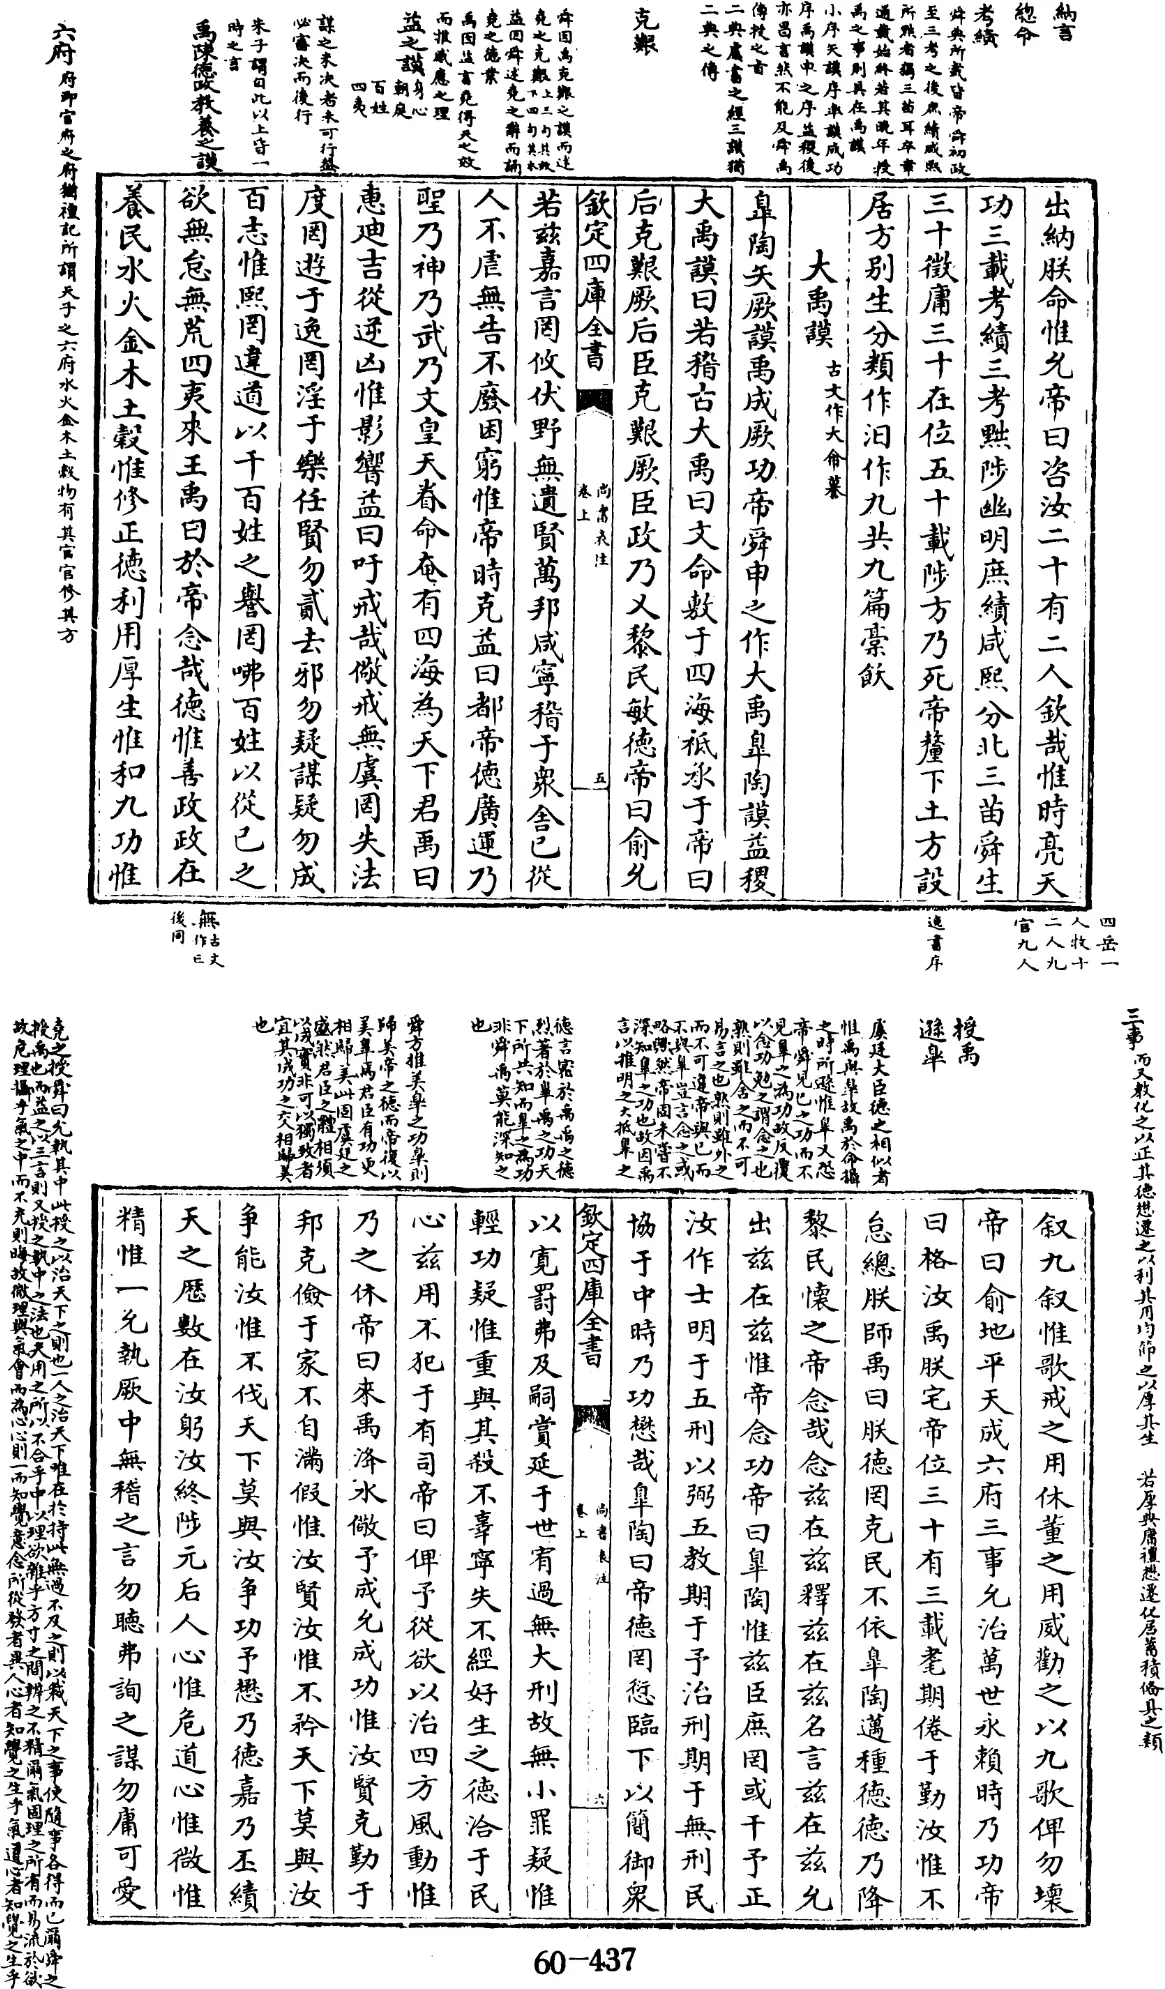 納言
總命
考績
舜典所載皆帝舜初政
至三考之後庶績咸熙
所黜者獨三苗耳卒章
通載始終若其晚年授
禹之事則具在禹謨
小序矢謨序皋謨成功
序禹謨申之序益稷後
亦昌言然不能及舜禹
傳授之旨
二典虞書之經三謨猶
二典之傳
克艱
舜因禹克艱之謨而述
益因舜述堯之辭而誦
堯之德業
禹因益言堯得天之效
而推感應之理
益之謨
身心
朝廷
百姓
四夷
謀之未決者未可行蓋
必審決而後行
朱子謂曰此以上皆一
時之言
禹陳德政教養之謨
六府 府即官府之府猶禮記所謂天子之六府水火金木土穀物有其官官修其方
出納朕命惟允帝曰咨汝二十有二人欽哉惟時亮天
功三載考績三考黜陟幽明庶績咸熙分北三苗舜生
三十徵庸三十在位五十載陟方乃死帝釐下土方設
居方別生分類作汩作九共九篇槀飫
大禹謨 古文作大命𦻏
皐陶矢厥謨禹成厥功帝舜申之作大禹皐陶謨益稷
大禹謨曰若稽古大禹曰文命敷于四海祗承于帝曰
后克艱厥后臣克艱厥臣政乃乂黎民敏德帝曰俞允
欽定四庫全書
尚書表注
卷上
五
若兹嘉言罔攸伏野無遺賢萬邦咸寧稽于衆舍己從
人不虐無告不廢困窮惟帝時克益曰都帝德廣運乃
聖乃神乃武乃文皇天眷命奄有四海為天下君禹曰
惠迪吉從逆凶惟影響益曰吁戒哉儆戒無虞罔失法
度罔遊于逸罔淫于樂任賢勿貳去邪勿疑謀疑勿成
百志惟熙罔違道以干百姓之譽罔咈百姓以從已之
欲無怠無荒四夷來王禹曰於帝念哉德惟善政政在
養民水火金木土穀惟修正德利用厚生惟和九功惟
四岳一
人牧十
二人九
官九人
逸書序
無古文
作亡
後同
三事 而又教化之以正其德懋遷之以利其用均節之以厚其生 若厚典庸禮懋遷化居蓄積備具之類
授禹
遜皐
虞廷大臣德之相似者
惟禹與皐故禹於命攝
之時所遜惟皐又恐
帝舜見已之功而不
見皐之為功故反覆
以念功勉之謂念之也
熟則雖舍之而不可
易言之也熟則雖外之
而不可違帝與已而
不與皐豈言念之或
略與然帝固未嘗不
深知皐之功也故因禹
言以推明之大抵皐之
德言密於禹禹之德
烈著於皐禹之功天
下所共知而皐之為功
非舜禹莫能深知之
也
舜方推美皐之功皐則
歸美帝之德而帝復以
美皐焉君臣有功更
相歸美此固虞廷之
盛然君臣之體相須
以成實非可以獨致者
宜其成功之交相歸美
也
叙九叙惟歌戒之用休董之用威勸之以九歌俾勿壞
帝曰俞地平天成六府三事允治萬世永賴時乃功帝
曰格汝禹朕宅帝位三十有三載耄期倦于勤汝惟不
怠總朕師禹曰朕德罔克民不依皐陶邁種德德乃降
黎民懷之帝念哉念兹在兹釋兹在兹名言兹在兹允
出兹在兹惟帝念功帝曰皐陶惟兹臣庶罔或干予正
汝作士明于五刑以弼五教期于予治刑期于無刑民
協于中時乃功懋哉皐陶曰帝德罔愆臨下以簡御衆
欽定四庫全書
尚書表注
卷上
六
以寛罸弗及嗣賞延于世宥過無大刑故無小罪疑惟
輕功疑惟重與其殺不辜寧失不經好生之德洽于民
心兹用不犯于有司帝曰俾予從欲以治四方風動惟
乃之休帝曰來禹洚水儆予成允成功惟汝賢克勤于
邦克儉于家不自滿假惟汝賢汝惟不矜天下莫與汝
争能汝惟不伐天下莫與汝爭功予懋乃德嘉乃丕績
天之厯數在汝躬汝終陟元后人心惟危道心惟微惟
精惟一允執厥中無稽之言勿聽弗詢之謀勿庸可愛
堯之授舜曰允執其中此授之以治天下之則也一人之治天下唯在於持此無過不及之則以裁天下之事使隨事各得而已爾舜之
授禹也而益之以三言則又授之執中之法也夫用之所以不合乎中以理欲雜乎方寸之間辨之不精爾氣固理之所有而易流於欲
故危理攝乎氣之中而不充則晦故微理與氣會而為心心則一而知覺意念所從發者異人心者知覺之生乎氣道心者知覺之生乎
60-437